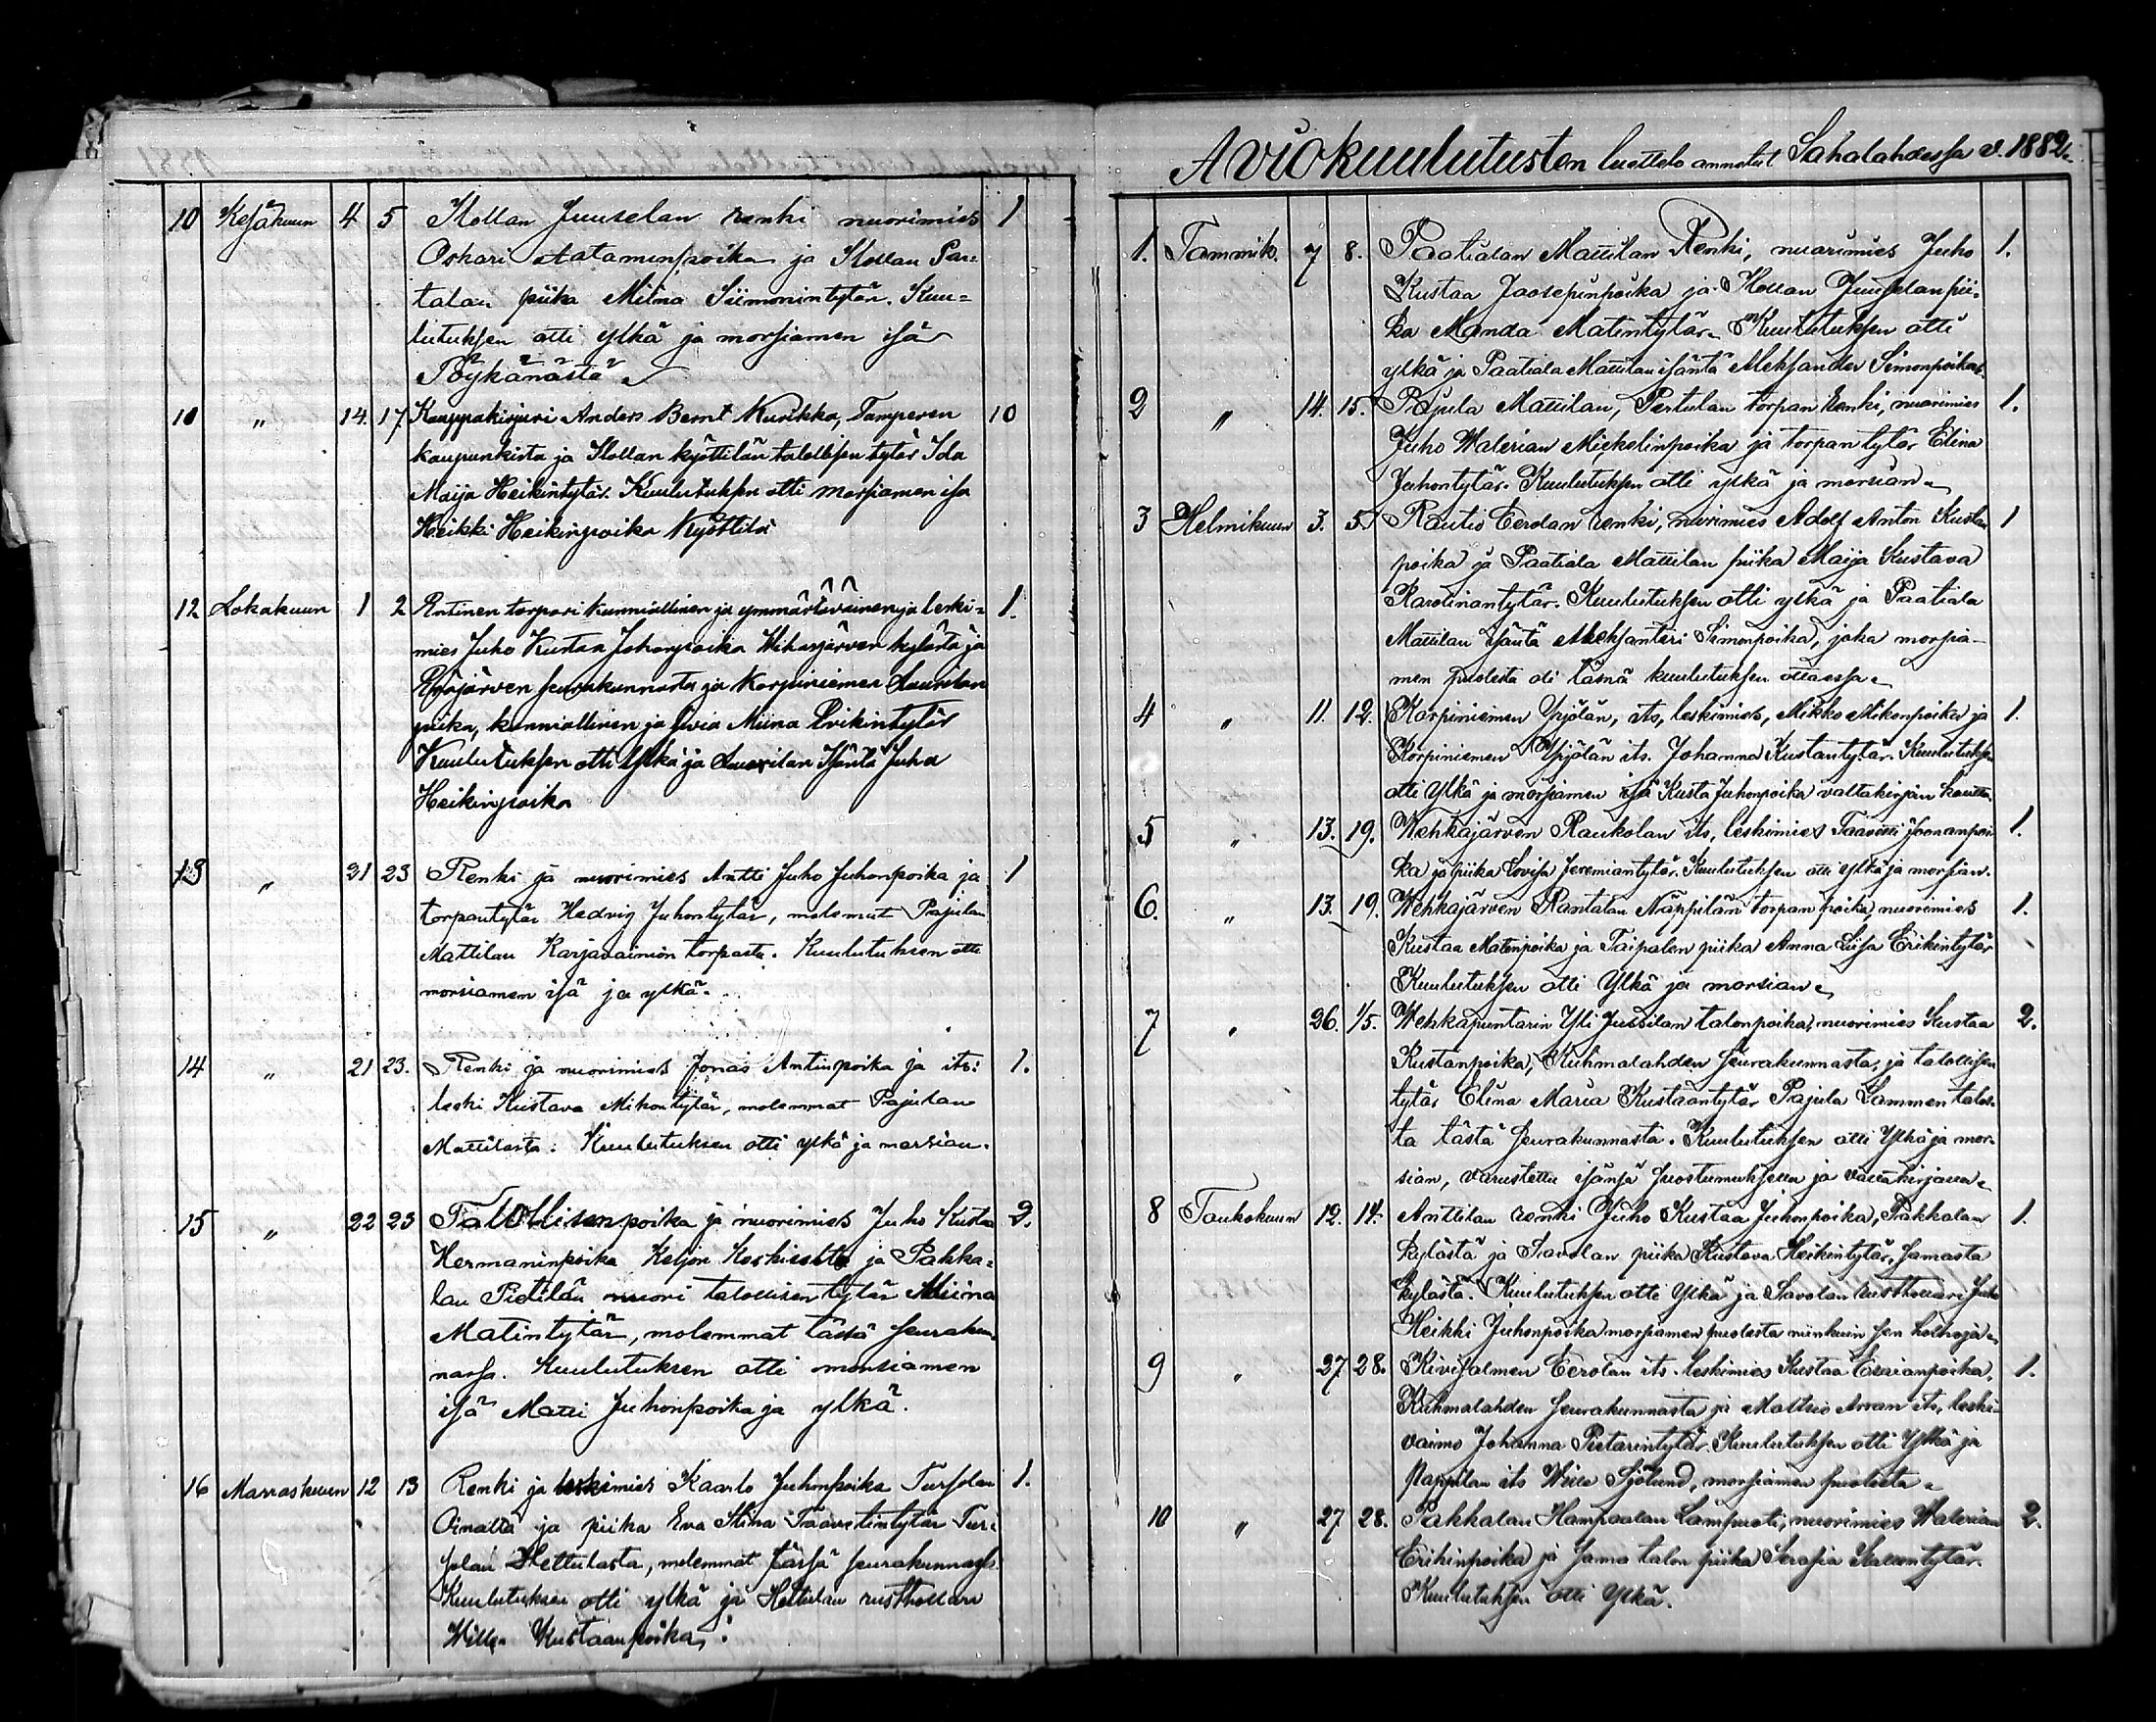 10 Kesäkuun 4 5 Hollan Juuselan renki nuorimies 1
Oskari Aataminpoika ja Hollan Pan-
talan piika Milma Siimonintytär. Kuu-
lutuksen otti ylkä ja morsiamen isä
Pöykänästä
10 " 14. 17. Kauppakirjuri Anders Bernt Kurikka, Tamperen 10
kaupunkista ja Hollan kyöttilän talollisen tytär Ida
Maija Heikintytär. Kuulutuksen otti morsiamen isä
Heikki Heikinpoika Kyöttilä
12 Lokakuun 1 2 Entinen torpari kunniallinen ja ymmärtäväinen ja leski- 1.
mies Juho Kustaa Johanpoika Wihasjärven kylästä ja
Eräjärven seurakunnasta ja Korpiniemen Laurilan
piika, kunniallinen ja siviä Miina Erikintytär
Kuulutuksen otti Ylkä ja Laurilan Isäntä Juha
Heikinpoika
13 " 21 23 Renki ja nuorimies Antti Juho Juhonpoika ja 1
torpantytär Hedvig Juhontytär, molemmat Pajulan
Mattilan Karjanaimion torpasta. Kuulutuksen otti
morsiamen isä ja ylkä.
14 " 21 23. Renki ja nuorimies Jonas Antinpoika ja its: 1.
leski Kustava Mikontytär, molemmat Pajulan
Mattilasta. Kuulutuksen otti ylkä ja morsian.
15 " 22 23 Talollisenpoika ja nuorimies Juho Kustaa 2.
Hermaninpoika Keljon ja Pakka-
lan Pietilän nuori talollisen tytär Miina
Matintytär, molemmat tässä seurakun-
nassa. Kuulutuksen otti morsiamen
isä Matti Juhonpoika ja ylkä.
16 Marraskuun 12 13 Renki ja leskimies Kaarlo Juhonpoika Tursolan 1.
Oinalta ja piika Eva Stina Taavetintytär Tur-
solan Hettulasta, molemmat tässä seurakunnassa.
Kuulutuksen otti ylkä ja Hettulan rusthollari
Wille Kustaanpoika.
Aviokuulutusten luettelo annetut Sahalahdessa v. 1882.
1. Tammik. 7 8. Paatialan Mattilan Renki, nuorimies Juho 1.
Kustaa Joosepinpoika ja Hollan Juuselan pii-
ka Manda Matintytär. Kuulutuksen otti
ylkä ja Paatiala Mattilan isäntä Aleksander Simonpoika.
2 " 14. 15. Pajula Mattilan, Pertulan torpan renki, nuorimies 1.
Juho Walerian Mickelinpoika ja torpan tytär Elina
Juhontytär. Kuulutuksen otti ylkä ja morsian.
3 Helmikuun 3. 5. Rautio Eerolan renki, nuorimies Adolf Anton Kustaa 1
poika ja Paatiala Mattilan piika Maija Kustava
Karolinantytär. Kuulutuksen otti ylkä ja Paatiala
Mattilan isäntä Aleksanteri Simonpoika, joka morsia-
men puolesta oli tässä kuulutuksen ottaessa.
4 " 11. 12. Korpiniemen Yrjölän, its, leskimies, Mikko Mikonpoika ja 1.
Korpiniemen Yrjölän its. Johanna Kustantytär. Kuulutuksen
otti Ylkä ja morsiamen isä Kusta Juhonpoika valtakirjan kautta.
5 " 13. 19. Wehkajärven Raukolan its, leskimies Taavetti Joonanpoi- 1.
ka ja piika Lovisa Jeremiantytär. Kuulutuksen otti ylkä ja morsian.
6. " 13. 19. Wehkajärven Rantalan Näppilän torpan poika, nuorimies 1.
Kustaa Matinpoika ja Taipalen piika Anna Liisa Erikintytär
Kuulutuksen otti Ylkä ja morsian.
7 " 26. 1/5. Wehkapuntarin Yli Jussilan talonpoika, nuorimies Kustaa 2.
Kustanpoika, Kuhmalahden seurakunnasta, ja talollisen
tytär Elina Maria Kustaantytär Pajula Lammen talos-
ta tästä seurakunnasta. Kuulutuksen otti Ylkä ja mor-
sian, varustettu isänsä suostumuksella ja valtakirjalla.
8 Toukokuun 12. 14. Anttilan renki Juho Kustaa Juhonpoika, Pakkalan 1.
kylästä ja Savolan piika Kustava Heikintytär, samasta
kylästä. Kuulutuksen otti Ylkä ja Savolan rusthollari Juho
Heikki Juhonpoika morsiamen puolesta niinkuin sen holhoja.
9 " 27 28. Kivisalmen Eerolan its. leskimies Kustaa Eerianpoika, 1.
Kuhmalahden seurakunnasta ja Mattsio Arran its, leski-
vaimo Johanna Pietarintytär. Kuulutuksen otti Ylkä ja
Pappilan its Wille Sjölund, morsiamen puolesta.
10 " 27 28. Pakkalan Hampaalan Lampuoti, nuorimies Walerian 2.
Erikinpoika ja sama talon piika Serafia
Kuulutuksen otti Ylkä.